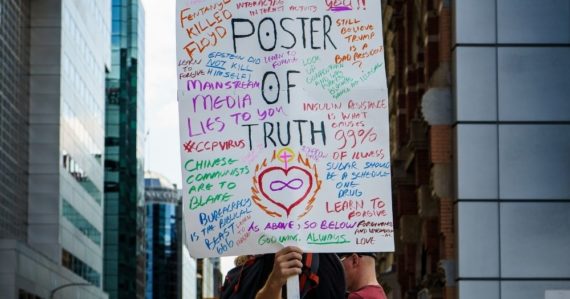 FENTANYL
KILLED
FLOYD
INTERACTING
INTERACTIVITY
YOU!!
STILL
BELIEVE
TRUMP
IS A
BAD PRESIDENT?
POSTER
OF
TRUTH
EPSTEIN DID
NOT KILL
HIMSELF!
LEARN
TO
FORGIVE
LEARN TO
FORGIVE
LOOK
UP
MAINSTREAM
MEDIA
LIES TO YOU
#CCPVIRUS
CHINESE
COMMUNISTS
ARE TO
BLAME
BURACRACY
IS THE BIBLICAL
BEAST
666
INSULIN RESISTANCE
IS WHAT
CAUSES
99%
OF ILLNESS
SUGAR SHOULD
BE A SCHEDULE
ONE
DRUG
LEARN TO
FORGIVE
AS ABOVE, SO BELOW
FORGIVENESS
GOD WINS. ALWAYS
LOVE